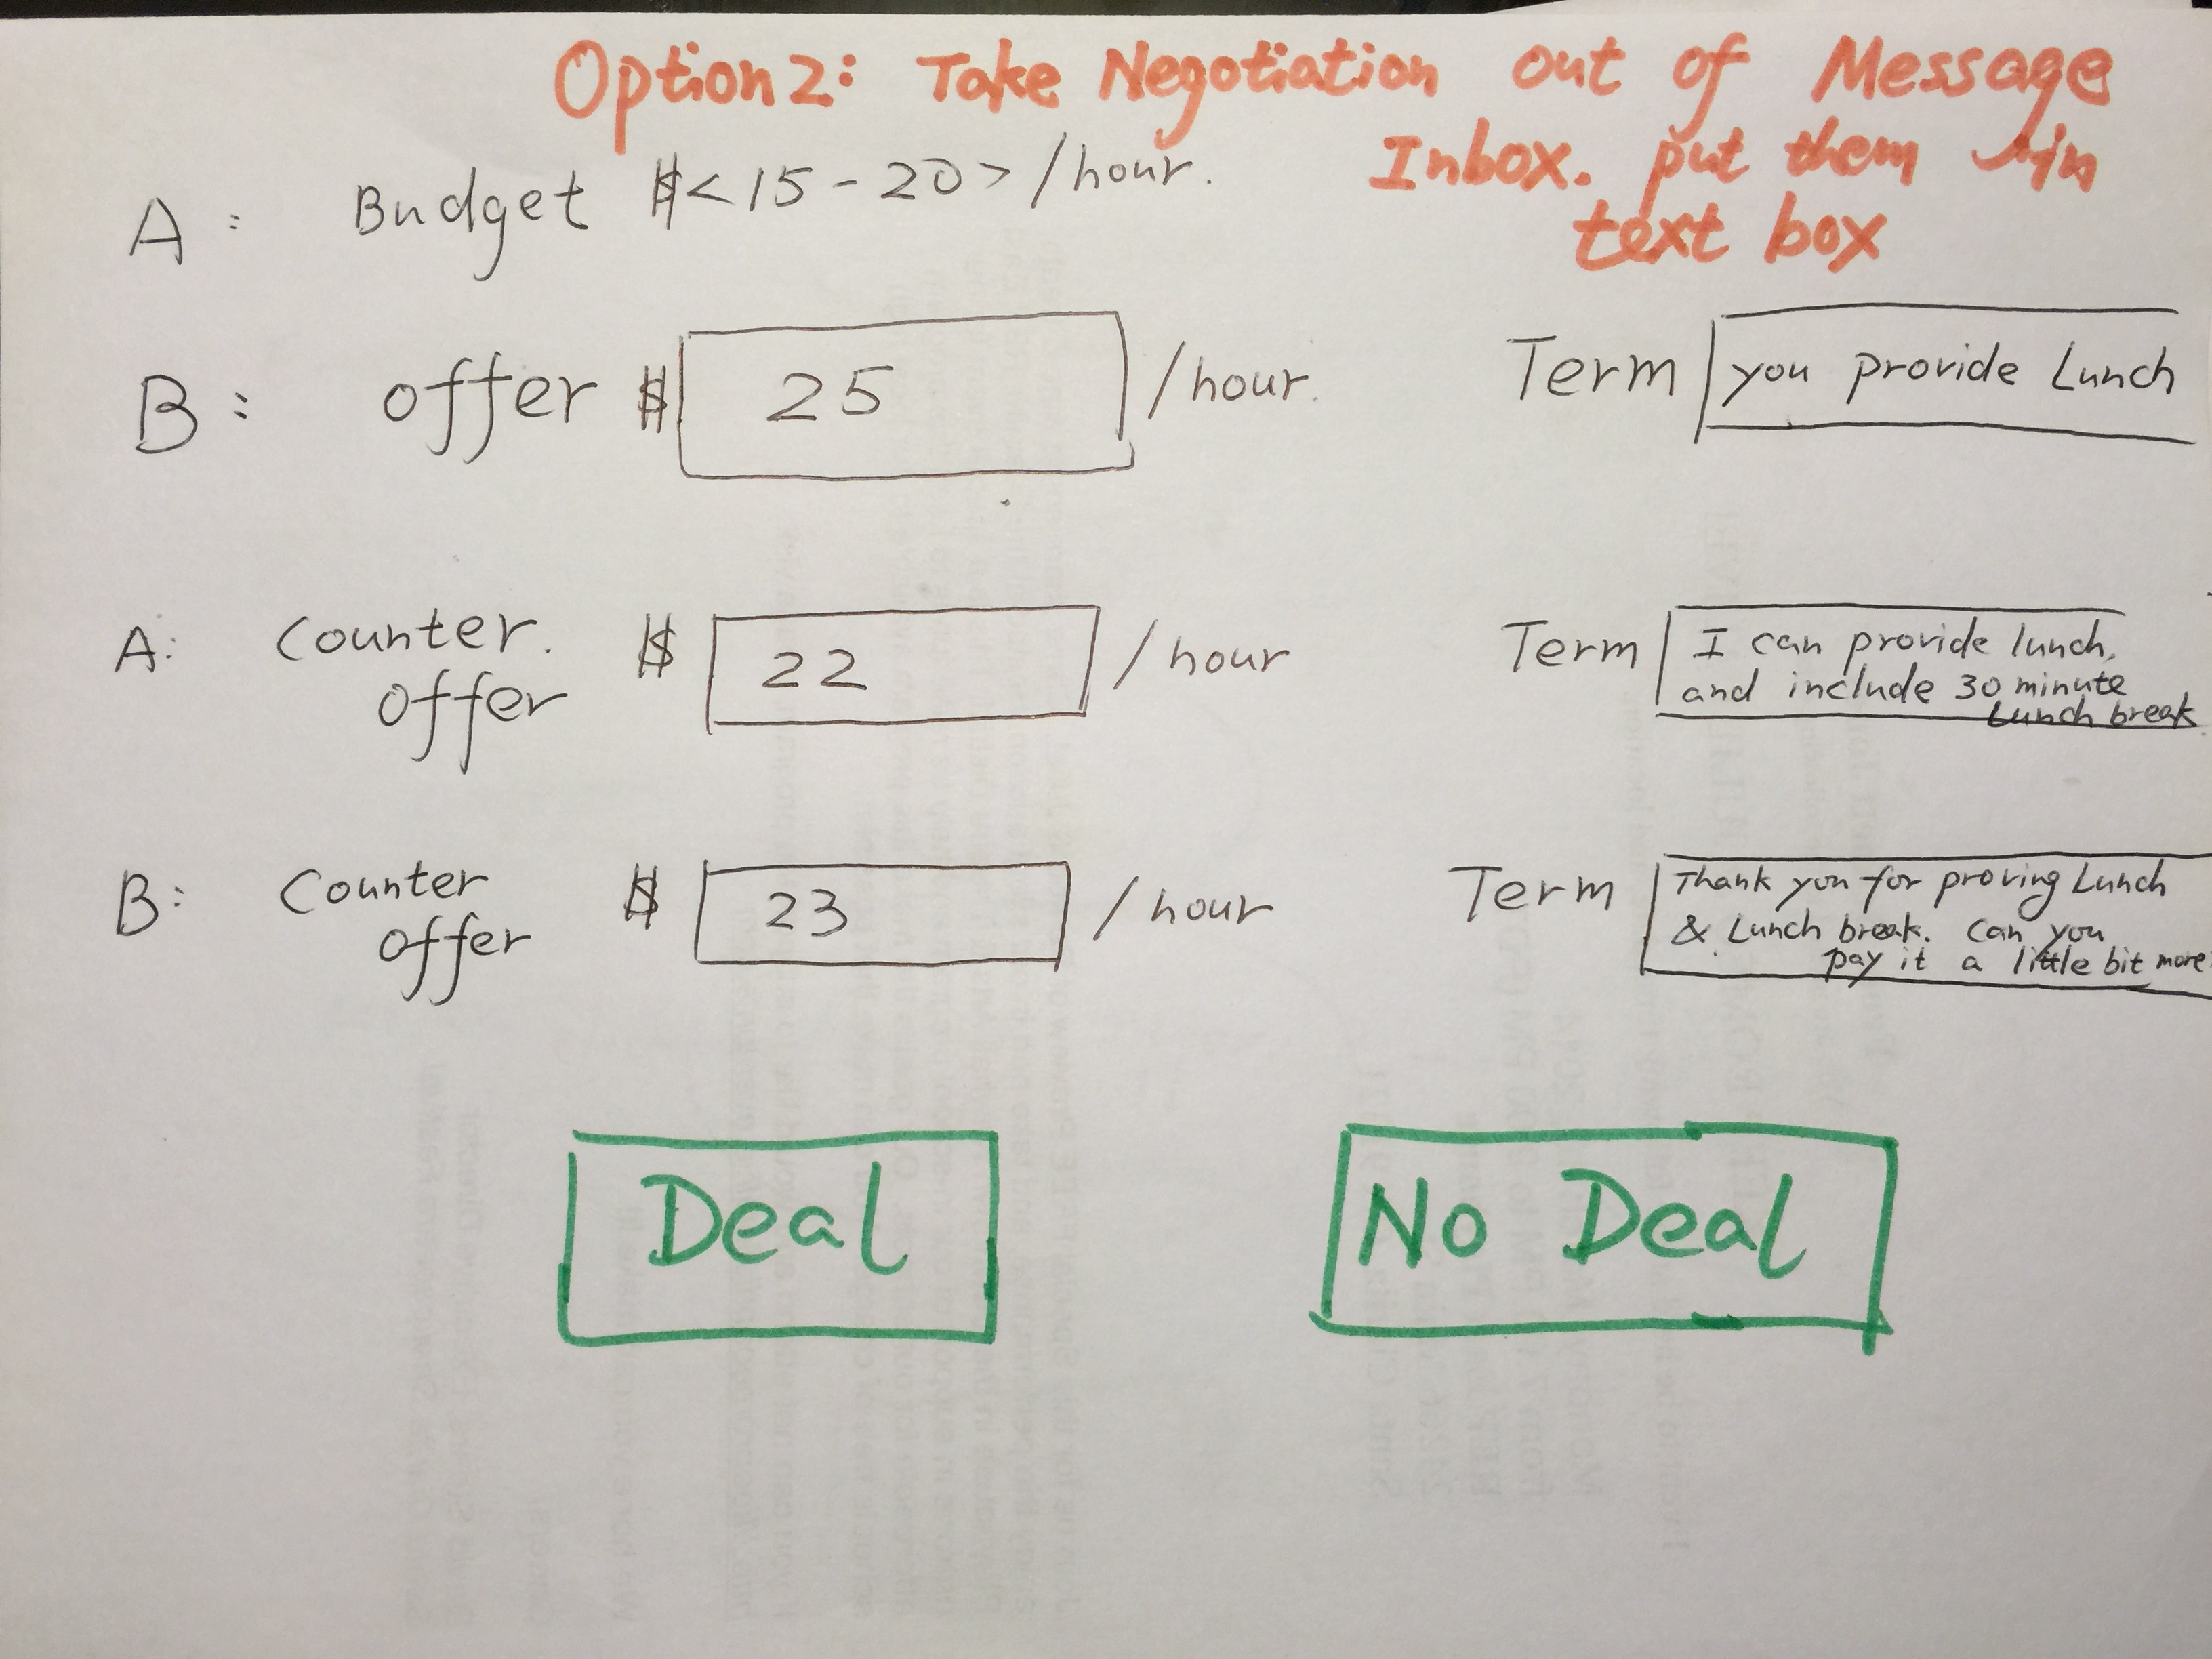 Option 2: Take Negotiation out of Message
Inbox. put them in
text box
A: Budget $<15-20>/hour.
B: offer $ 25 /hour. Term you provide Lunch
A: Counter. offer $ 22 /hour Term I can provide lunch,
and include 30 minute
Lunch break
B: Counter offer $ 23 /hour Term Thank you for proving Lunch
& Lunch break. Can you
pay it a little bit more
Deal No Deal